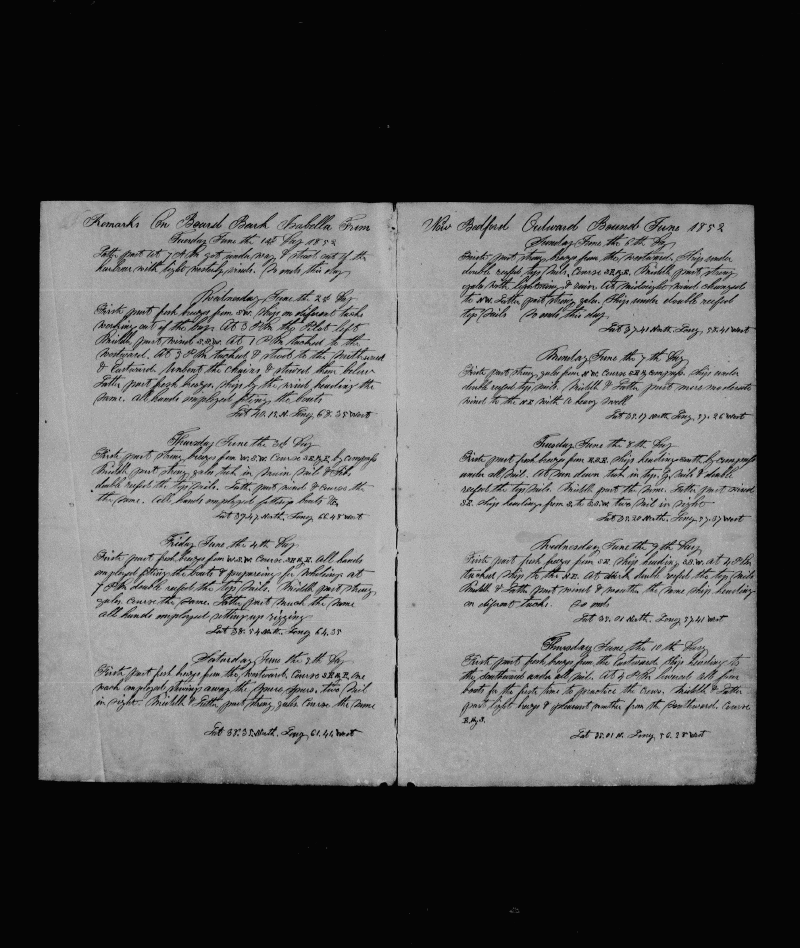 Remarks On Board Bark Isabella From
Tuesday June the 1st Day 1852
Latter part At 7 AM got under way & stood out of the
harbour with light westerly winds. So ends this day
Wednesday June the 2d Day
First part fresh breeze from S.W. Ship on different tacks
working out of the bay. At 3 PM the Pilot left
Middle part wind S.S.W. At 1 PM tacked to the
westward. At 3 PM tacked & stood to the Southward
& Eastward. Unbent the Chains & stowed them below
Latter part fresh breeze, Ship by the wind heading the
same. All hands employed fitting the boats
Lat 40.12 N. Long 68.35 West
Thursday June the 3d Day
First part strong breeze from W.S.W. Course S.E.by E. by compass
Middle part strong gale took in main sail & Jib
double reefed the top sails. Latter part wind & course the
the same. All hands employed fitting boats &c
Lat 39.47 North. Long 66.48 West
Friday June the 4th Day
First part fresh breeze from W.S.W. Course S.E.by E. All hands
employed fitting the boats & preparing for whaleing at
7 PM double reefed the top sails. Middle part strong
gales course the same. Latter part much the same
all hands employed setting up rigging
Lat 38.54 North. Long 64.35
Saturday June the 5th Day
First part fresh breeze from the westward. Course S.E.by E. one
watch employed stowing away the spare spars, two sail
in sight. Middle & Latter part strong gales Course the same
Lat 38.35 North. Long 61.44 West
New Bedford Outward Bound June 1852
Sunday June the 6th Day
First part strong breeze from the westward. Ship under
double reefed top sails. Course S.E.by E. Middle part strong
gale with lightning & rain. At midnight wind changed
to N.W. Latter part strong gale. Ship under double reefed
top sails So ends this day
Lat 37.41 North. Long 58.41 West
Monday June the 7th Day
First part strong gales from N.W. Course S.E. by compass. Ship under
double reefed top sails. Middle & Latter part more moderate
wind to the N.E. with a heavy swell
Lat 35.17 North. Long 57.26 West
Tuesday June the 8th Day
First part fresh breeze from E.S.E. Ship heading South by compass
under all sail. At sun down took in top G. sails & double
reefed the top sails. Middle part the same. Latter part wind
S.E. Ship heading from S. to S.S.W. two sail in sight
Lat 35.20 North. Long 57.37 West
Wednesday June the 9th Day
First part fresh breeze from S.E. Ship heading S.S.W. at 4 PM
tacked Ship to the N.E. At dark double reefed the top sails
Middle & Latter part wind & weather the same Ship heading
on different tacks. So ends
Lat 35.01 North. Long 57.41 West
Thursday June the 10th Day
First part fresh breeze from the Eastward, Ship heading to
the Southward under all sail. At 4 PM lowered all four
boats for the first time to practice the crew. Middle & Latter
part light breeze & pleasant weather from the Southward. Course
E.by S.
Lat 35.01 N. Long 56.28 West